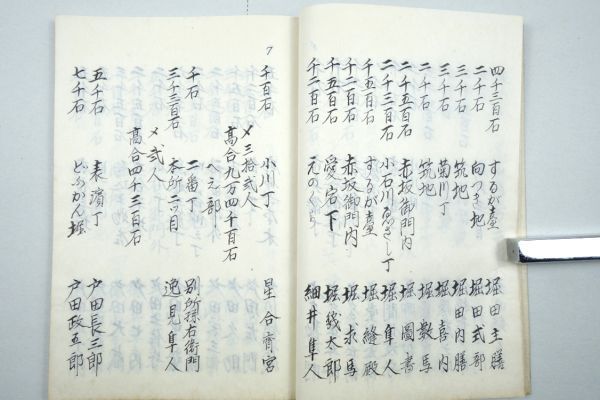 四千三百石 するが臺 堀田主膳
二千石 向つき地 堀田式部
三千石 筑地 堀田内膳
三千石 菊川丁 堀喜内
二千石 筑地 堀数馬
二千五百石 赤坂御門内 堀圖書
二千三百石 小石川 丁 堀隼人
千五百石 するが臺 堀縫殿
千二百石 赤坂御門内 堀求馬
千五百石 愛宕下 堀幾太郎
千二百石 細井隼人
7
千百石 小川丁 星合齊宮
〆三拾弐人
高合九万四千百石
へ之部
千石 二番丁 別所孫右衛門
三千三百石 本所二ツ目 逸見隼人
〆弐人
高合四千三百石
五千石 表濱丁 戸田長三郎
七千石 どぶがん堀 戸田政五郎